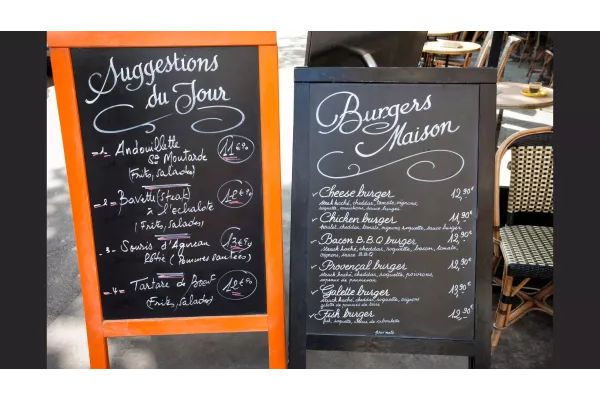 Suggestions
du Jour
Andouillette
Moutarde
(Frites, salades)
Bavette (steak)
à l'echalote
(Frites, salades)
Souris d'Agneau
(Pommes sautées)
Tartare de Boeuf
(Frites, salades)
Burgers
Maison
Cheese burger 12,90€
steak haché, cheddar, tomate, oignons
Chicken burger 11,90€
poulet, cheddar, tomate, oignons, roquette, sauce burger
Bacon B.B.Q burger 12,-
steack haché, cheddar, roquette, bacon, tomate,
oignons, sauce BBQ
Provençal burger 12,90€
steack haché, cheddar, roquette, poivrons
Galette burger 12,90€
steack haché, cheddar, roquette, oignons
galette de pommes de terre
Fish burger 12,90€